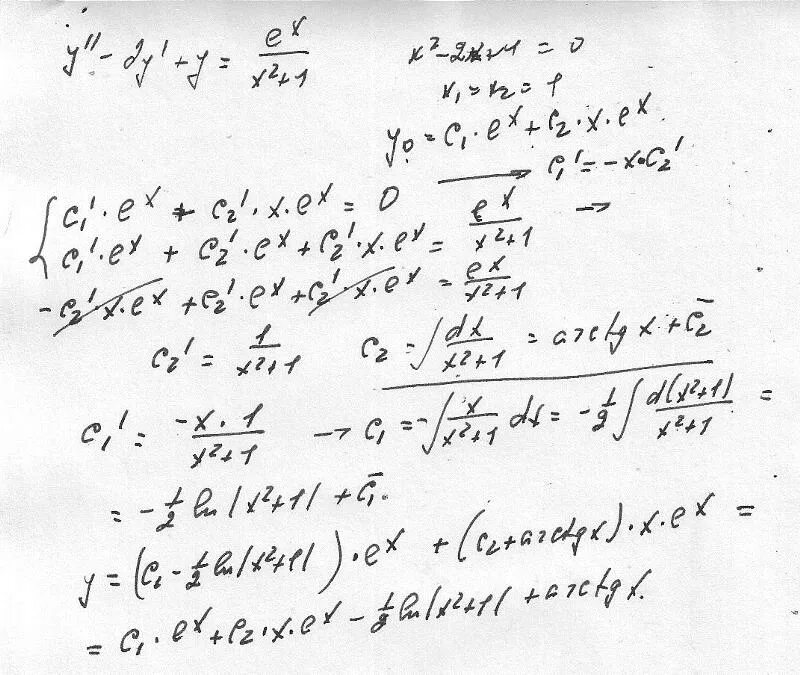 y'' - 2y' + y = e^x / (x²+1)
x² - 2x + 1 = 0
x₁ = x₂ = 1
y₀ = C₁ · e^x + C₂ · x · e^x
{ C₁' · e^x + C₂' · x · e^x = 0 → C₁' = -x · C₂'
C₁' · e^x + C₂' · e^x + C₂' · x · e^x = e^x / (x²+1) →
- C₂' · x · e^x + C₂' · e^x + C₂' · x · e^x = e^x / (x²+1)
C₂' = 1 / (x²+1) C₂ = ∫ dx / (x²+1) = arctg x + C̄₂
C₁' = -x · 1 / (x²+1) → C₁ = -∫ x / (x²+1) dx = -1/2 ∫ d(x²+1) / (x²+1) =
= -1/2 ln|x²+1| + C̄₁.
y = (C₁ - 1/2 ln|x²+1|) · e^x + (C₂ + arctg x) · x · e^x =
= C₁ · e^x + C₂ · x · e^x - 1/2 ln|x²+1| + arctg x.